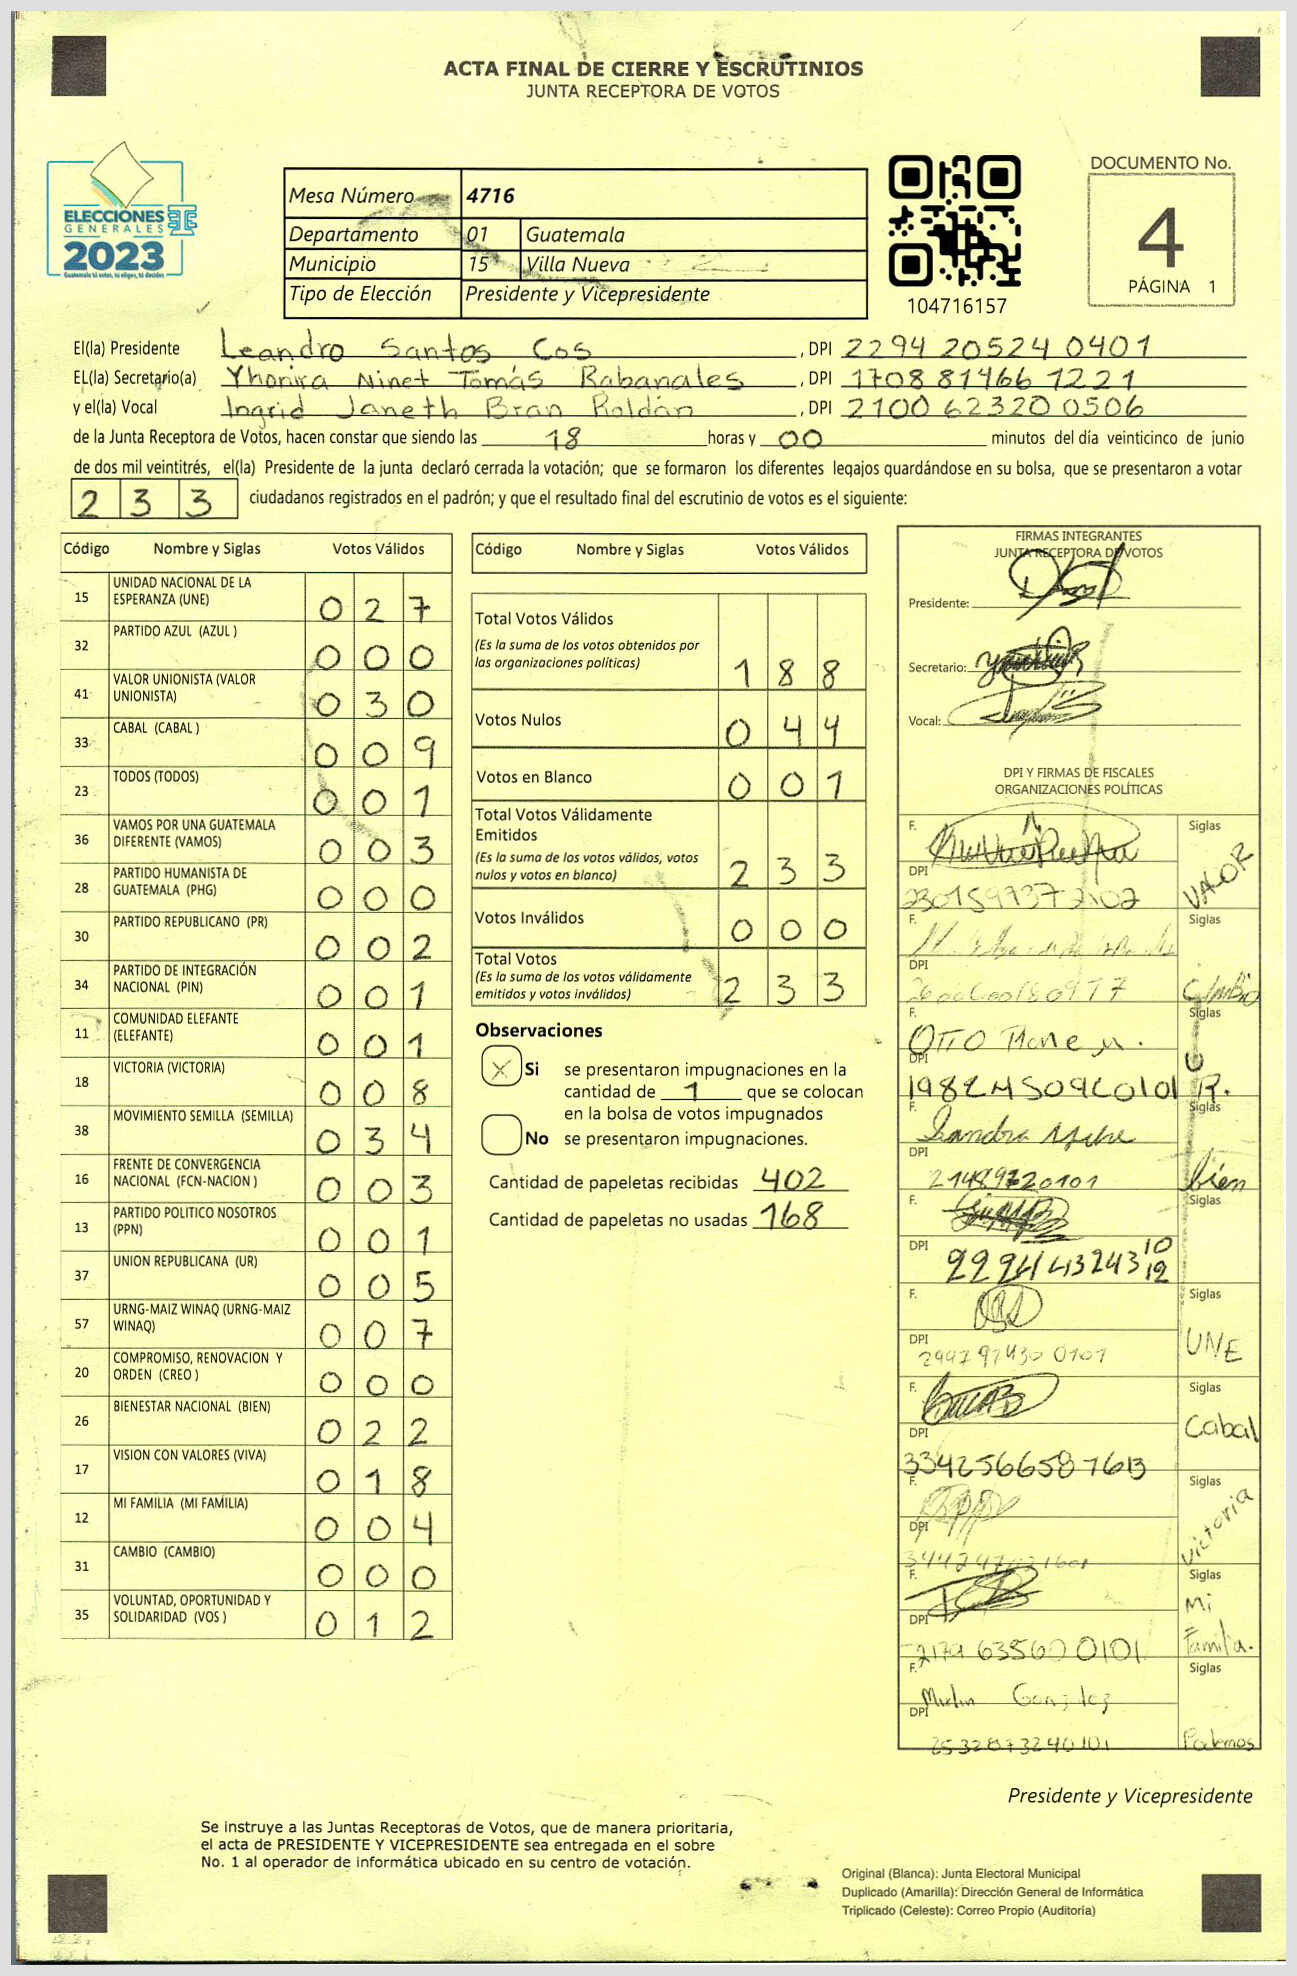 ACTA FINAL DE CIERRE Y ESCRUTINIOS
JUNTA RECEPTORA DE VOTOS
ELECCIONES
GENERALES
2023
Guatemala tú votas, tú eliges, tú decides
Mesa Número 4716
Departamento 01 Guatemala
Municipio 15 Villa Nueva
Tipo de Elección Presidente y Vicepresidente
104716157
DOCUMENTO No.
4
PÁGINA 1
El(la) Presidente Leandro Santos Cos , DPI 2294 20524 0401
EL(la) Secretario(a) Yhonira Ninet Tomás Rabanales , DPI 1708 81466 1221
y el(la) Vocal Ingrid Janeth Bran Roldán , DPI 2100 62320 0506
de la Junta Receptora de Votos, hacen constar que siendo las 18 horas y 00 minutos del día veinticinco de junio
de dos mil veintitrés, el(la) Presidente de la junta declaró cerrada la votación; que se formaron los diferentes legajos guardándose en su bolsa, que se presentaron a votar
233 ciudadanos registrados en el padrón; y que el resultado final del escrutinio de votos es el siguiente:
Código Nombre y Siglas Votos Válidos
15 UNIDAD NACIONAL DE LA ESPERANZA (UNE) 0 2 7
32 PARTIDO AZUL (AZUL ) 0 0 0
41 VALOR UNIONISTA (VALOR UNIONISTA) 0 3 0
33 CABAL (CABAL ) 0 0 9
23 TODOS (TODOS) 0 0 1
36 VAMOS POR UNA GUATEMALA DIFERENTE (VAMOS) 0 0 3
28 PARTIDO HUMANISTA DE GUATEMALA (PHG) 0 0 0
30 PARTIDO REPUBLICANO (PR) 0 0 2
34 PARTIDO DE INTEGRACIÓN NACIONAL (PIN) 0 0 1
11 COMUNIDAD ELEFANTE (ELEFANTE) 0 0 1
18 VICTORIA (VICTORIA) 0 0 8
38 MOVIMIENTO SEMILLA (SEMILLA) 0 3 4
16 FRENTE DE CONVERGENCIA NACIONAL (FCN-NACION ) 0 0 3
13 PARTIDO POLITICO NOSOTROS (PPN) 0 0 1
37 UNION REPUBLICANA (UR) 0 0 5
57 URNG-MAIZ WINAQ (URNG-MAIZ WINAQ) 0 0 7
20 COMPROMISO, RENOVACION Y ORDEN (CREO ) 0 0 0
26 BIENESTAR NACIONAL (BIEN) 0 2 2
17 VISION CON VALORES (VIVA) 0 1 8
12 MI FAMILIA (MI FAMILIA) 0 0 4
31 CAMBIO (CAMBIO) 0 0 0
35 VOLUNTAD, OPORTUNIDAD Y SOLIDARIDAD (VOS ) 0 1 2
Código Nombre y Siglas Votos Válidos
Total Votos Válidos
(Es la suma de los votos obtenidos por
las organizaciones políticas) 1 8 8
Votos Nulos 0 4 4
Votos en Blanco 0 0 1
Total Votos Válidamente
Emitidos
(Es la suma de los votos válidos, votos
nulos y votos en blanco) 2 3 3
Votos Inválidos 0 0 0
Total Votos
(Es la suma de los votos válidamente
emitidos y votos inválidos) 2 3 3
Observaciones
X Si se presentaron impugnaciones en la
cantidad de 1 que se colocan
en la bolsa de votos impugnados
No se presentaron impugnaciones.
Cantidad de papeletas recibidas 402
Cantidad de papeletas no usadas 168
FIRMAS INTEGRANTES
JUNTA RECEPTORA DE VOTOS
Presidente:
Secretario:
Vocal:
DPI Y FIRMAS DE FISCALES
ORGANIZACIONES POLÍTICAS
F. Siglas
DPI VALOR
F. Siglas
DPI Cambio
F. Siglas
Otto
DPI U R.
F. Siglas
Sandra
DPI bien
2148972 0101
F. Siglas
DPI
F. Siglas
DPI UNE
F. Siglas
DPI Cabal
F. Siglas
DPI Victoria
F. Siglas
DPI Mi Familia.
F. Siglas
DPI Podemos
Presidente y Vicepresidente
Se instruye a las Juntas Receptoras de Votos, que de manera prioritaria,
el acta de PRESIDENTE Y VICEPRESIDENTE sea entregada en el sobre
No. 1 al operador de informática ubicado en su centro de votación.
Original (Blanca): Junta Electoral Municipal
Duplicado (Amarilla): Dirección General de Informática
Triplicado (Celeste): Correo Propio (Auditoría)